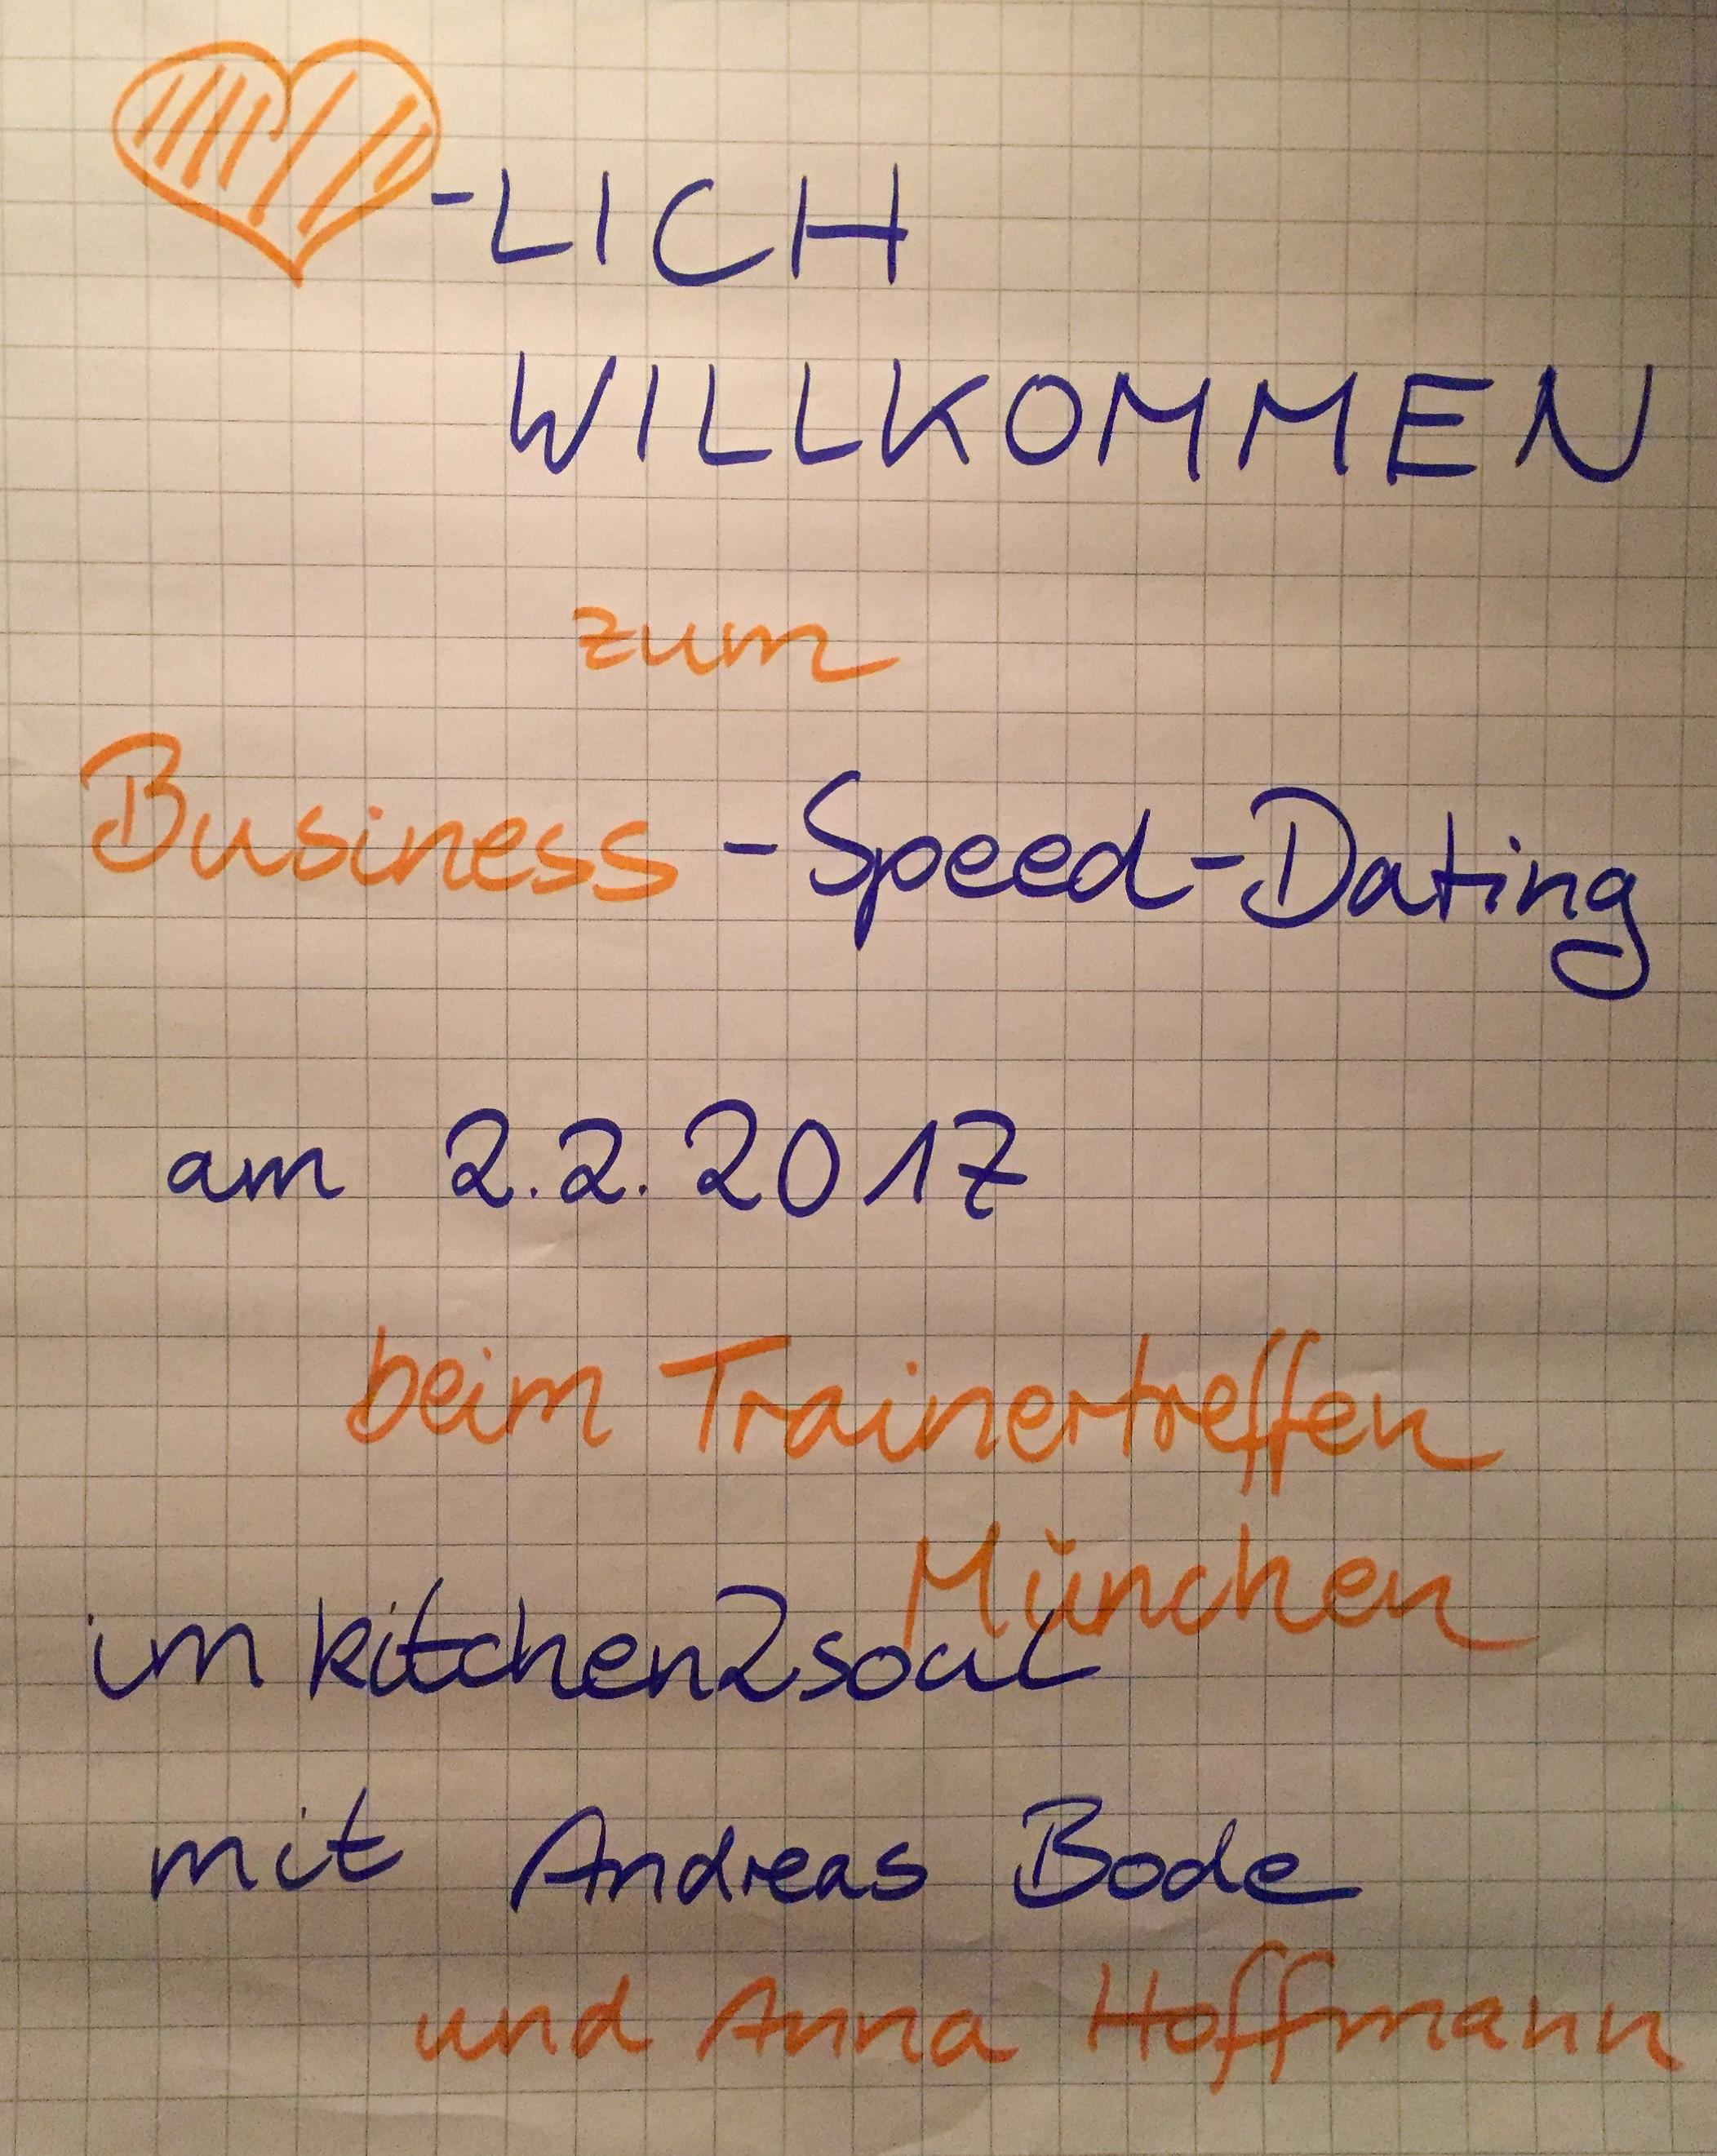 -LICH
WILLKOMMEN
zum
Business-Speed-Dating
am 2.2.2017
beim Trainertreffen
München
im kitchen2soul
mit Andreas Bode
und Anna Hoffmann